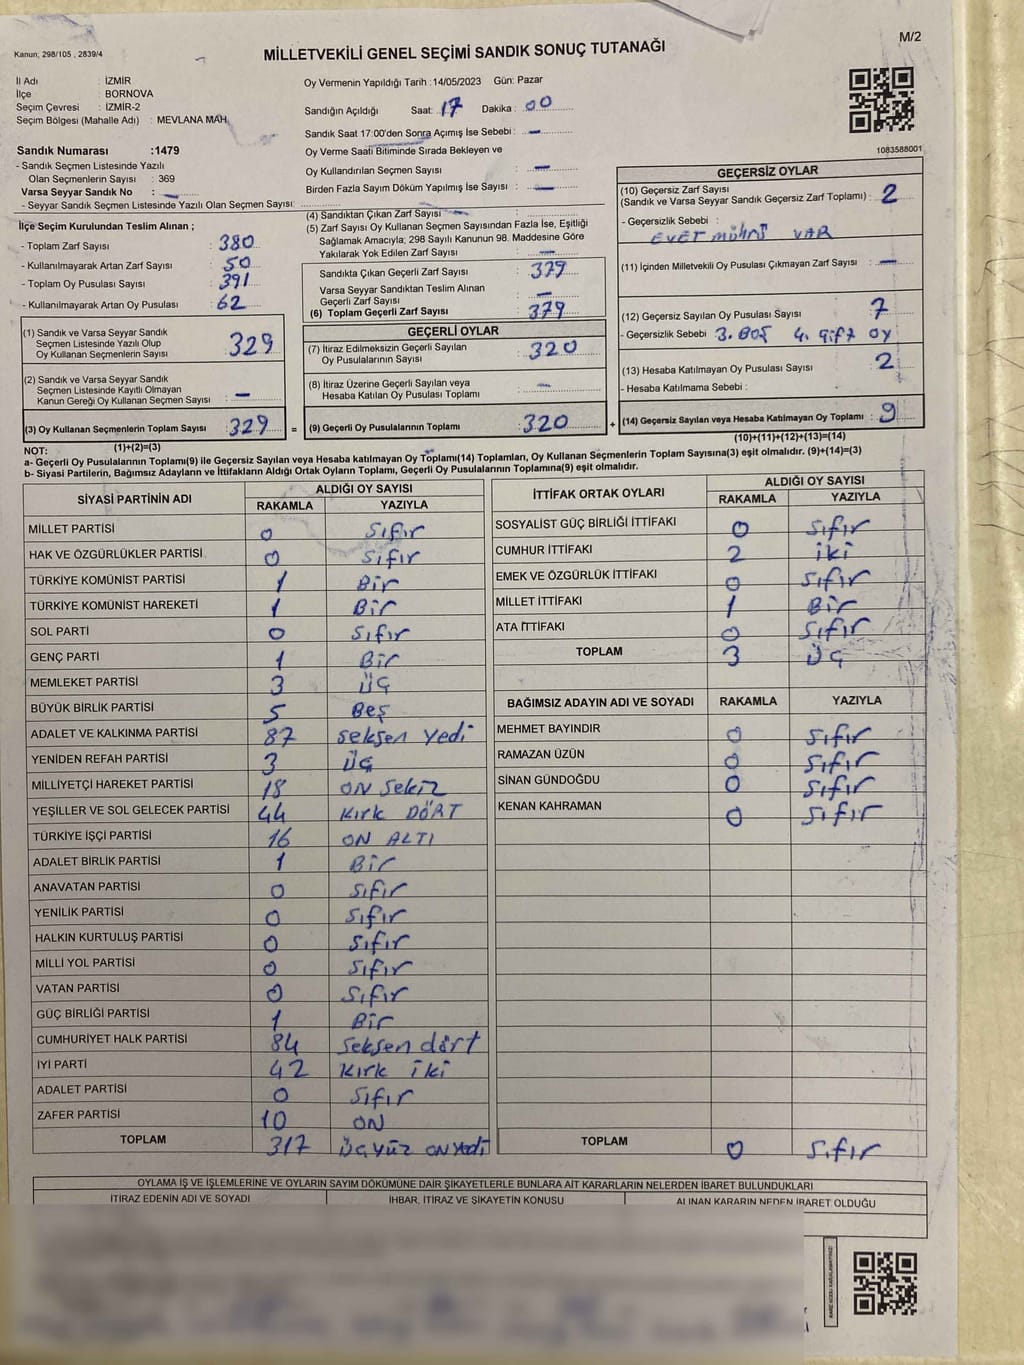 M/2
Kanun; 298/105 , 2839/4
MİLLETVEKİLİ GENEL SEÇİMİ SANDIK SONUÇ TUTANAĞI
İl Adı : İZMİR
İlçe : BORNOVA
Seçim Çevresi : İZMİR-2
Seçim Bölgesi (Mahalle Adı) : MEVLANA MAH.
Oy Vermenin Yapıldığı Tarih :14/05/2023 Gün: Pazar
Sandığın Açıldığı Saat: 17 Dakika : 00
Sandık Saat 17:00'den Sonra Açımış İse Sebebi : –
Oy Verme Saati Bitiminde Sırada Bekleyen ve
Oy Kullandırılan Seçmen Sayısı : –
Birden Fazla Sayım Döküm Yapılmış İse Sayısı : –
1083588001
Sandık Numarası :1479
- Sandık Seçmen Listesinde Yazılı
Olan Seçmenlerin Sayısı : 369
Varsa Seyyar Sandık No : –
- Seyyar Sandık Seçmen Listesinde Yazılı Olan Seçmen Sayısı:
İlçe Seçim Kurulundan Teslim Alınan ;
- Toplam Zarf Sayısı : 380
- Kullanılmayarak Artan Zarf Sayısı : 50
- Toplam Oy Pusulası Sayısı : 391
- Kullanılmayarak Artan Oy Pusulası : 62
(1) Sandık ve Varsa Seyyar Sandık
Seçmen Listesinde Yazılı Olup
Oy Kullanan Seçmenlerin Sayısı : 329
(2) Sandık ve Varsa Seyyar Sandık
Seçmen Listesinde Kayıtlı Olmayan
Kanun Gereği Oy Kullanan Seçmen Sayısı : –
(3) Oy Kullanan Seçmenlerin Toplam Sayısı : 329
(1)+(2)=(3)
(4) Sandıktan Çıkan Zarf Sayısı : –
(5) Zarf Sayısı Oy Kullanan Seçmen Sayısından Fazla İse, Eşitliği
Sağlamak Amacıyla; 298 Sayılı Kanunun 98. Maddesine Göre
Yakılarak Yok Edilen Zarf Sayısı : –
Sandıkta Çıkan Geçerli Zarf Sayısı : 379
Varsa Seyyar Sandıktan Teslim Alınan
Geçerli Zarf Sayısı : –
(6) Toplam Geçerli Zarf Sayısı : 379
GEÇERLİ OYLAR
(7) İtiraz Edilmeksizin Geçerli Sayılan
Oy Pusulalarının Sayısı : 320
(8) İtiraz Üzerine Geçerli Sayılan veya
Hesaba Katılan Oy Pusulası Toplamı : –
= (9) Geçerli Oy Pusulalarının Toplamı : 320 +
GEÇERSİZ OYLAR
(10) Geçersiz Zarf Sayısı
(Sandık ve Varsa Seyyar Sandık Geçersiz Zarf Toplamı) : 2
- Geçersizlik Sebebi :
EVET MÜHRÜ VAR
(11) İçinden Milletvekili Oy Pusulası Çıkmayan Zarf Sayısı : –
(12) Geçersiz Sayılan Oy Pusulası Sayısı : 7
- Geçersizlik Sebebi : 3. BOŞ 4. Çift OY
(13) Hesaba Katılmayan Oy Pusulası Sayısı : 2
- Hesaba Katılmama Sebebi :
(14) Geçersiz Sayılan veya Hesaba Katılmayan Oy Toplamı : 9
(10)+(11)+(12)+(13)=(14)
NOT:
a- Geçerli Oy Pusulalarının Toplamı(9) ile Geçersiz Sayılan veya Hesaba Katılmayan Oy Toplamı(14) Toplamları, Oy Kullanan Seçmenlerin Toplam Sayısına(3) eşit olmalıdır. (9)+(14)=(3)
b- Siyasi Partilerin, Bağımsız Adayların ve İttifakların Aldığı Ortak Oyların Toplamı, Geçerli Oy Pusulalarının Toplamına(9) eşit olmalıdır.
SİYASİ PARTİNİN ADI
ALDIĞI OY SAYISI
RAKAMLA YAZIYLA
MİLLET PARTİSİ 0 Sıfır
HAK VE ÖZGÜRLÜKLER PARTİSİ 0 Sıfır
TÜRKİYE KOMÜNİST PARTİSİ 1 Bir
TÜRKİYE KOMÜNİST HAREKETİ 1 Bir
SOL PARTİ 0 Sıfır
GENÇ PARTİ 1 Bir
MEMLEKET PARTİSİ 3 üç
BÜYÜK BİRLİK PARTİSİ 5 Beş
ADALET VE KALKINMA PARTİSİ 87 seksen yedi
YENİDEN REFAH PARTİSİ 3 üç
MİLLİYETÇİ HAREKET PARTİSİ 18 ON Sekiz
YEŞİLLER VE SOL GELECEK PARTİSİ 44 Kırk DÖRT
TÜRKİYE İŞÇİ PARTİSİ 16 ON ALTI
ADALET BİRLİK PARTİSİ 1 Bir
ANAVATAN PARTİSİ 0 Sıfır
YENİLİK PARTİSİ 0 Sıfır
HALKIN KURTULUŞ PARTİSİ 0 Sıfır
MİLLİ YOL PARTİSİ 0 Sıfır
VATAN PARTİSİ 0 Sıfır
GÜÇ BİRLİĞİ PARTİSİ 1 Bir
CUMHURİYET HALK PARTİSİ 84 Seksen dört
İYİ PARTİ 42 Kırk iki
ADALET PARTİSİ 0 Sıfır
ZAFER PARTİSİ 10 ON
TOPLAM 317 üçyüz onyedi
İTTİFAK ORTAK OYLARI
ALDIĞI OY SAYISI
RAKAMLA YAZIYLA
SOSYALİST GÜÇ BİRLİĞİ İTTİFAKI 0 Sıfır
CUMHUR İTTİFAKI 2 iki
EMEK VE ÖZGÜRLÜK İTTİFAKI 0 Sıfır
MİLLET İTTİFAKI 1 Bir
ATA İTTİFAKI 0 Sıfır
TOPLAM 3 üç
BAĞIMSIZ ADAYIN ADI VE SOYADI RAKAMLA YAZIYLA
MEHMET BAYINDIR 0 Sıfır
RAMAZAN ÜZÜN 0 Sıfır
SİNAN GÜNDOĞDU 0 Sıfır
KENAN KAHRAMAN 0 Sıfır
TOPLAM 0 Sıfır
OYLAMA İŞ VE İŞLEMLERİNE VE OYLARIN SAYIM DÖKÜMÜNE DAİR ŞİKAYETLERLE BUNLARA AİT KARARLARIN NELERDEN İBARET BULUNDUKLARI
İTİRAZ EDENİN ADI VE SOYADI
İHBAR, İTİRAZ VE ŞİKAYETİN KONUSU
ALINAN KARARIN NEDEN İBARET OLDUĞU